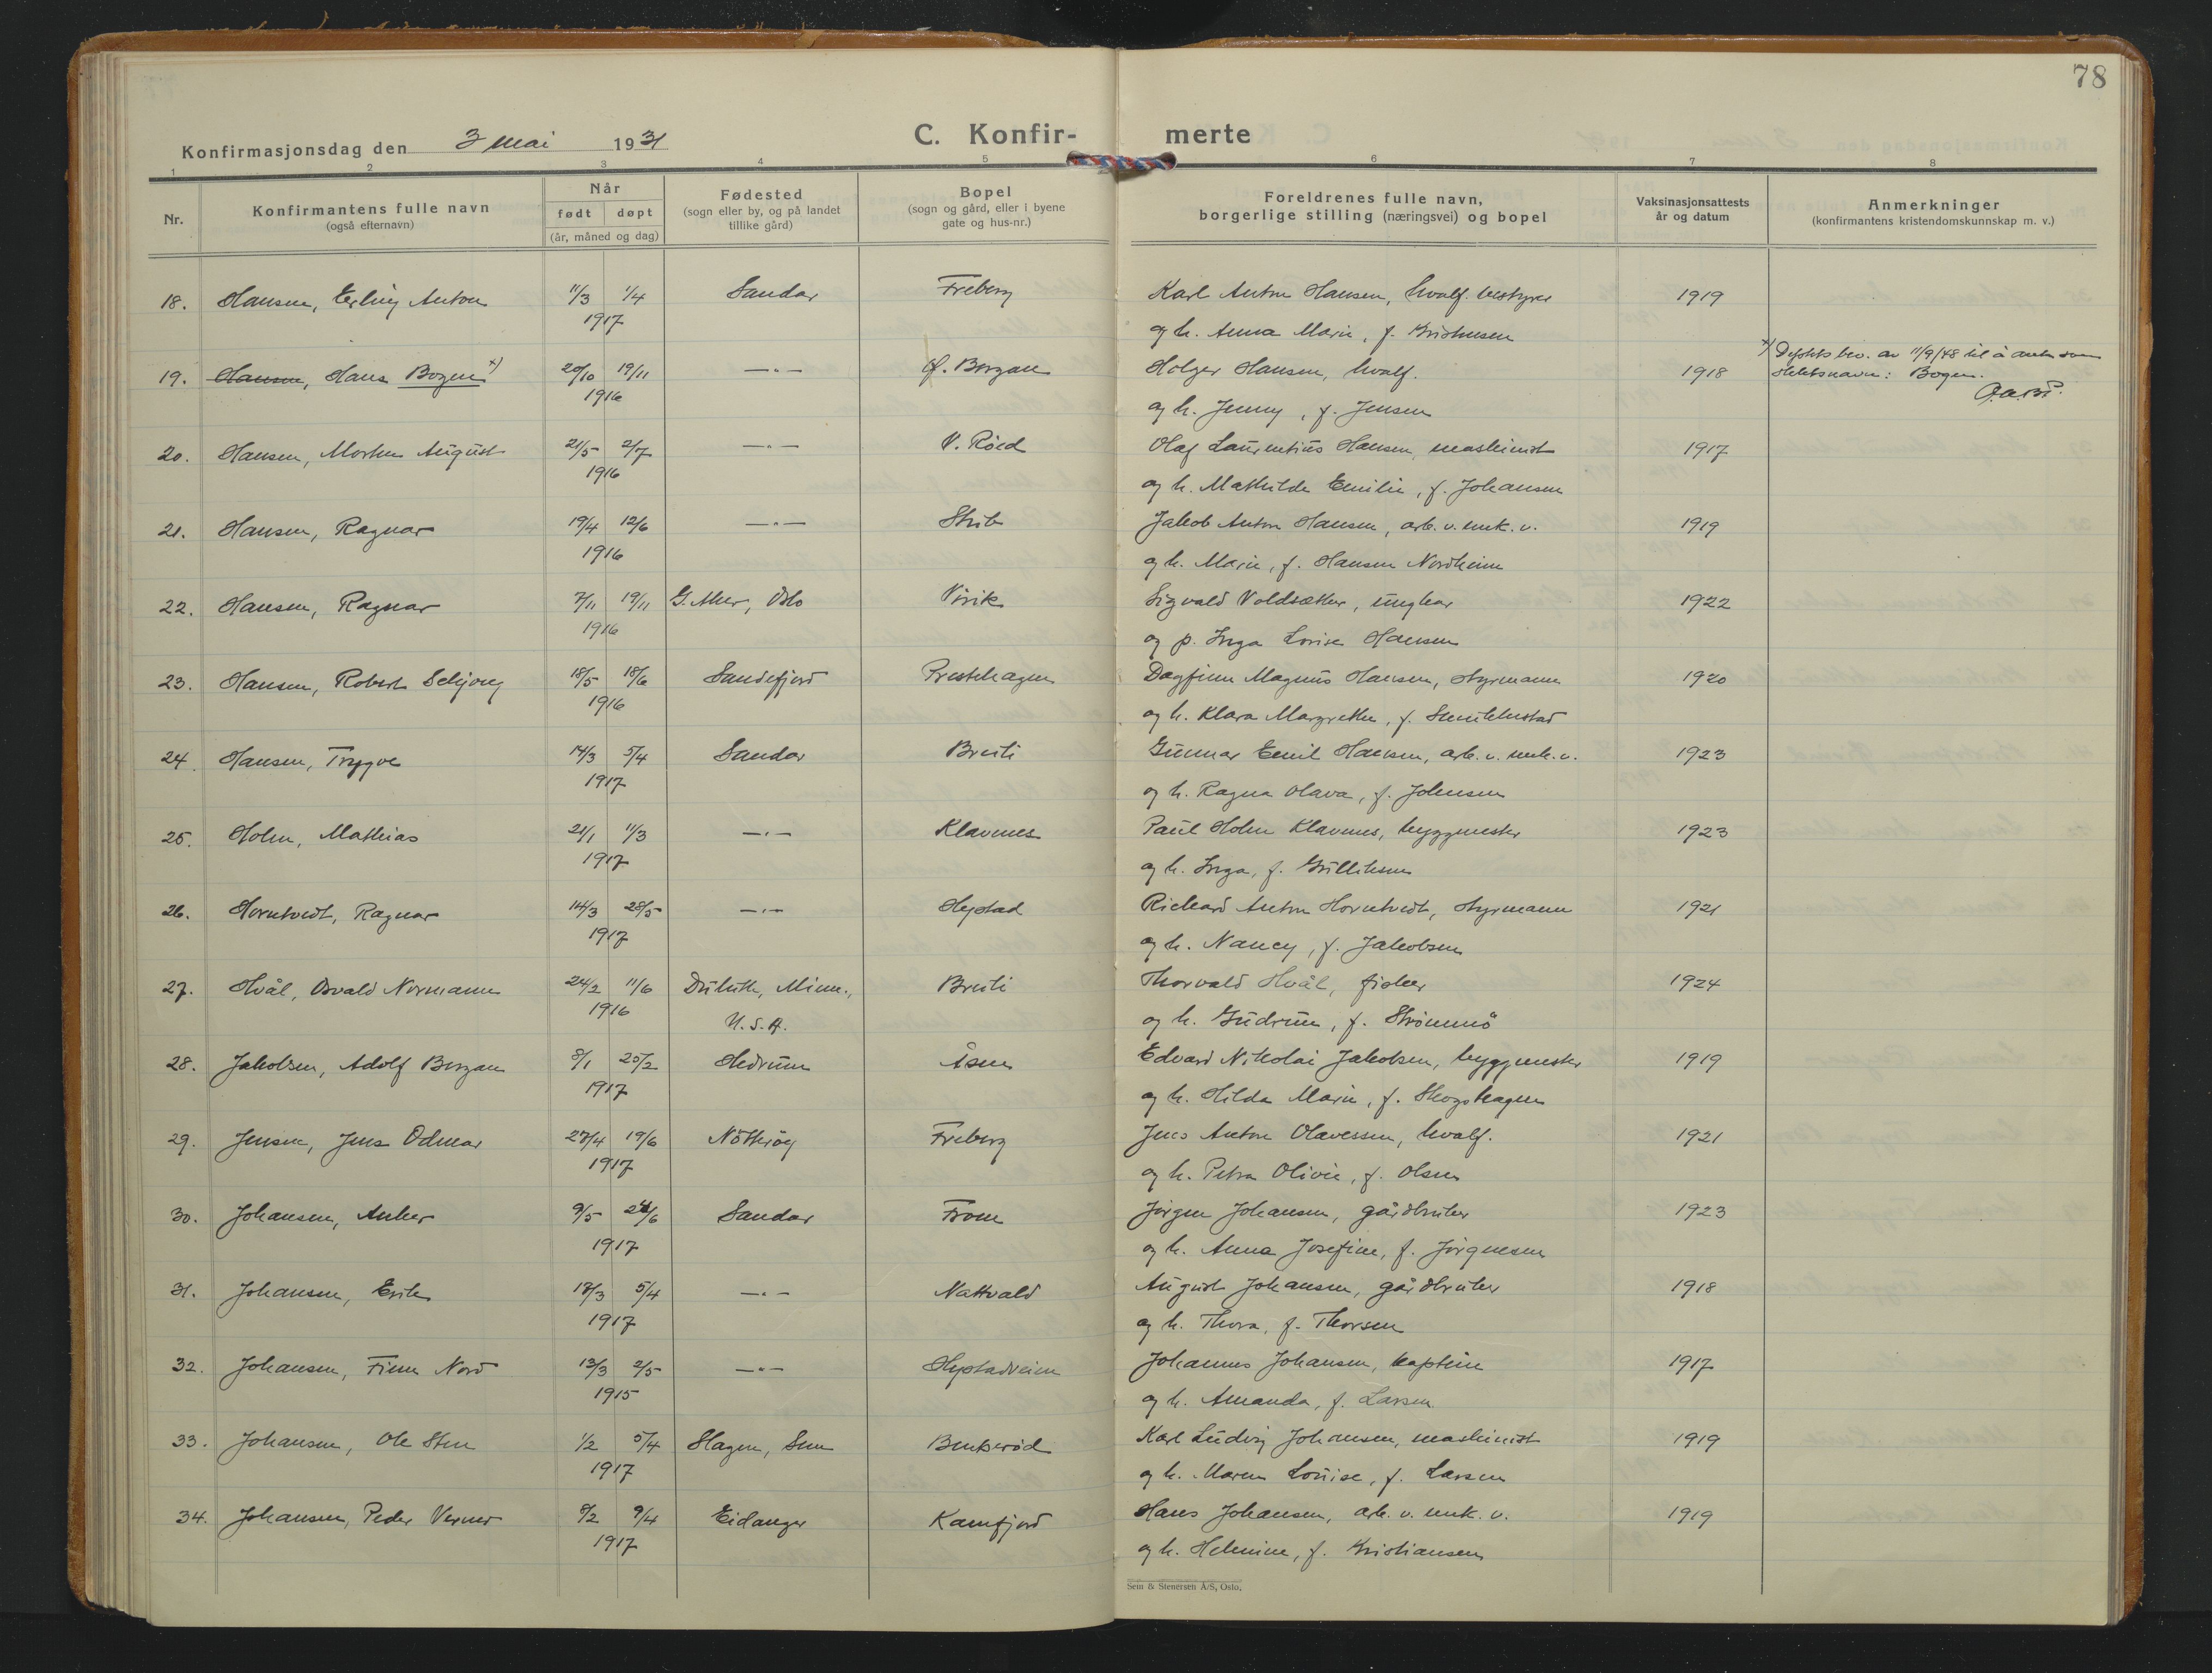 78
Konfirmasjonsdag den 3 mai 1931
C. Konfir- merte
1 2 3 4 5 6 7 8
Nr.
Konfirmantens fulle navn
(også efternavn)
Når
født døpt
(år, måned og dag)
Fødested
(sogn eller by, og på landet
tillike gård)
Bopel
(sogn og gård, eller i byene
gate og hus-nr.)
Foreldrenes fulle navn,
borgerlige stilling (næringsvei) og bopel
Vaksinasjonsattests
år og datum
Anmerkninger
(konfirmantens kristendomskunnskap m. v.)
18. Hansen, Erling Anton 11/3 1/4 Sandar Freberg Karl Anton Hansen, hvalf. bestyrer 1919
1917 og h. Anna Marie, f. Kristensen
x) av 11/9/48 til å
19. Hansen, Hans Bogen x) 20/10 19/11 —"— Holger Hansen, hvalf. 1918 slektsnavn: Bogen.
1916 og h. Jenny, f. Jensen
20. Hansen, Morten August 21/5 2/7 —"— V. Røed Olaf Laurentius Hansen, maskinist 1917
1916 og h. Mathilde Emilie, f. Johansen
21. Hansen, Ragnar 19/4 12/6 —"— Strib Jakob Anton Hansen, arb. v. mek. v. 1919
1916 og h. Marie, f. Hansen Nordheim
22. Hansen, Ragnar 7/11 19/11 G. Aker, Oslo Virik Sigvald Voldsæther, ungkar 1922
1916 og p. Inga Lovise Hansen
23. Hansen, Robert Seljong 18/5 18/6 Sandefjord Prestehagen Dagfinn Magnus Hansen, styrmann 1920
1916 og h. Klara Margrethe, f.
24. Hansen, Trygve 14/3 5/4 Sandar Breili Gunnar Emil Hansen, arb. v. mek. v. 1923
1917 og h. Ragna Olava, f. Johnsen
25. Holm, Mathias 21/1 11/3 —"— Klavenes Paul Holm Klavenes, byggmester 1923
1917 og h. Inga, f. Gulliksen
26. Horntvedt, Ragnar 14/3 28/5 —"— Hystad Richard Anton Horntvedt, styrmann 1921
1917 og h. Nancy, f. Jakobsen
27. Hvål, Osvald Normann 24/2 11/6 Duluth, Minn., Breili Thorvald Hvål, fisker 1924
1916 U.S.A. og h. Gudrun, f. Strömmö
28. Jakobsen, Adolf Bergan 8/1 25/2 Hedrum Åsen Edvard Nikolai Jakobsen, byggmester 1919
1917 og h. Hilda Marie, f. Skogshagen
29. Jensen, Jens Odmar 27/4 19/6 Nötterøy Freberg Jens Anton Olavessen, hvalf. 1921
1917 og h. Petra Olivie, f. Olsen
30. Johansen, Anker 9/5 24/6 Sandar Fron Jørgen Johansen, gårdbruker 1923
1917 og h. Anna Josefine, f. Jørgensen
31. Johansen, Erik 17/3 5/4 —"— Nattvald August Johansen, gårdbruker 1918
1917 og h. Thora, f. Thorsen
32. Johansen, Finn Nord 13/3 2/5 —"— Hystadveien Johannes Johansen, kaptein 1917
1915 og h. Amanda, f. Larsen
33. Johansen, Ole Sten 1/2 5/4 Slagen, Sem Bukerød Karl Ludvig Johansen, maskinist 1919
1917 og h. Maren Louise, f. Larsen
34. Johansen, Peder Verner 8/2 9/4 Eidanger Kamfjord Hans Johansen, arb. v. mek. v. 1919
1917 og h. Helmine, f. Kristiansen
Sem & Stenersen A/S, Oslo.